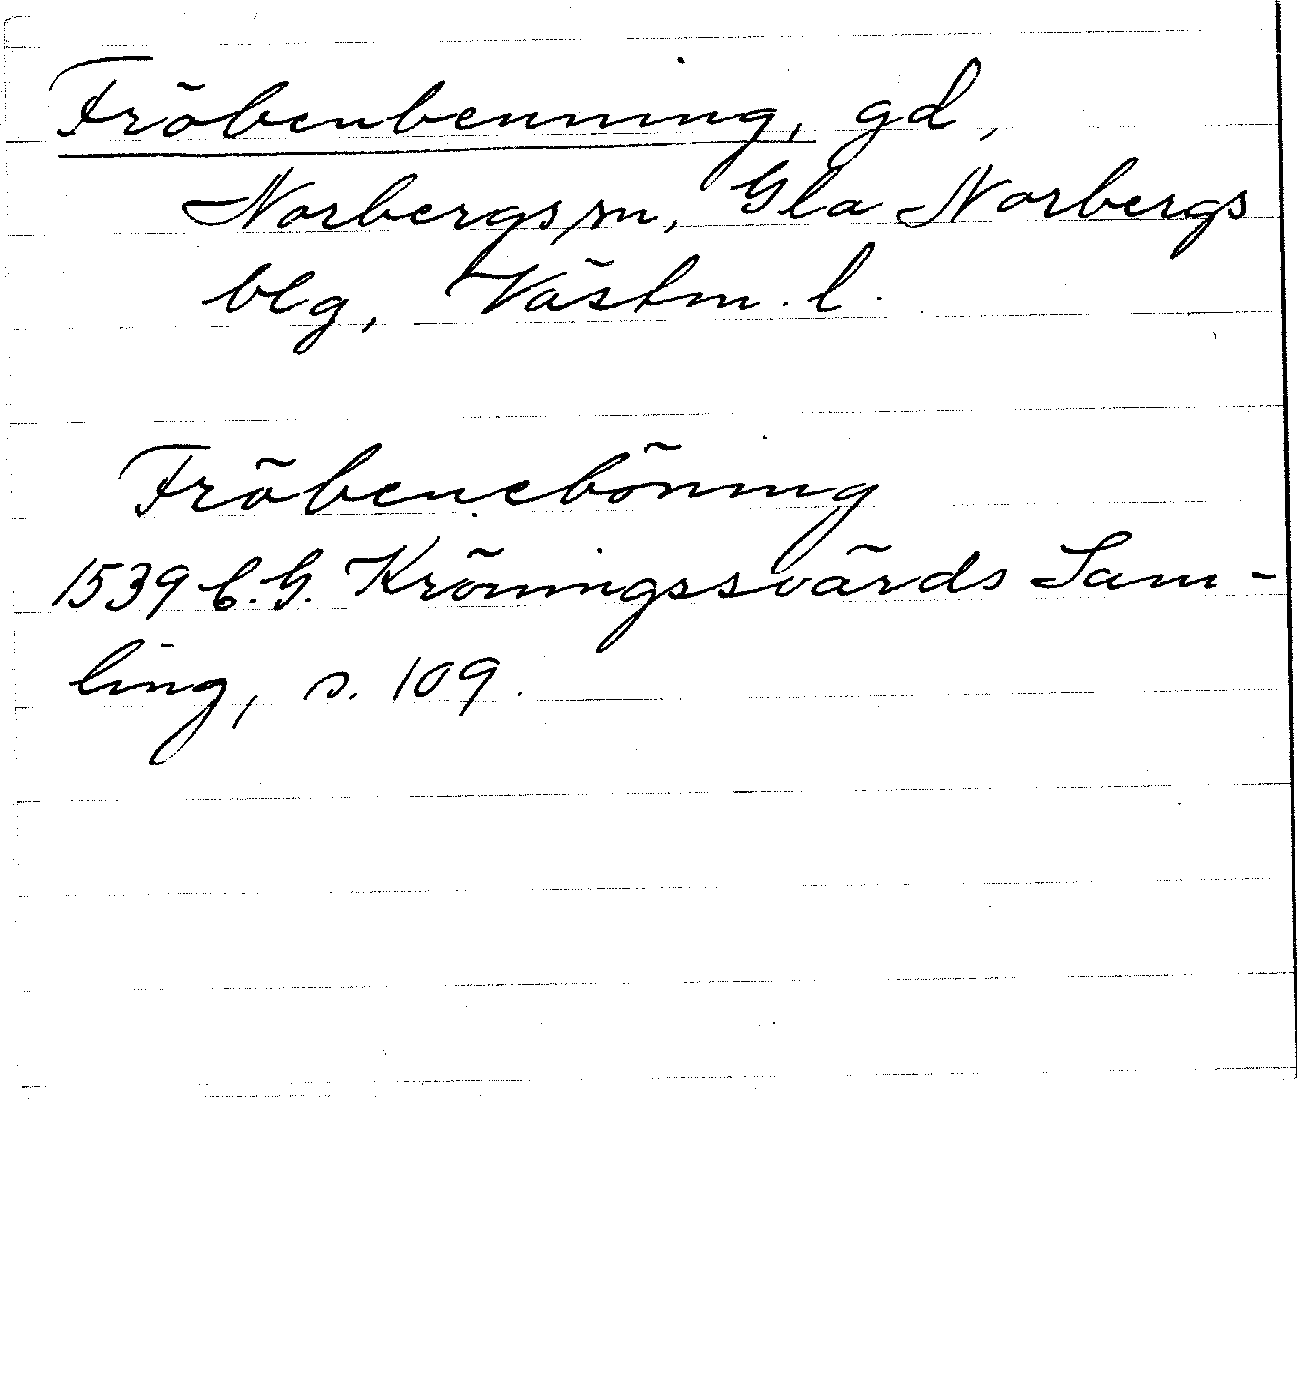 Fröbenbenning, gd,
Norbergs sn, Gla Norbergs
blg, Västm. l.
Fröbenebönning
1539 C.G. Kröningssvärds Sam-
ling, s. 109.